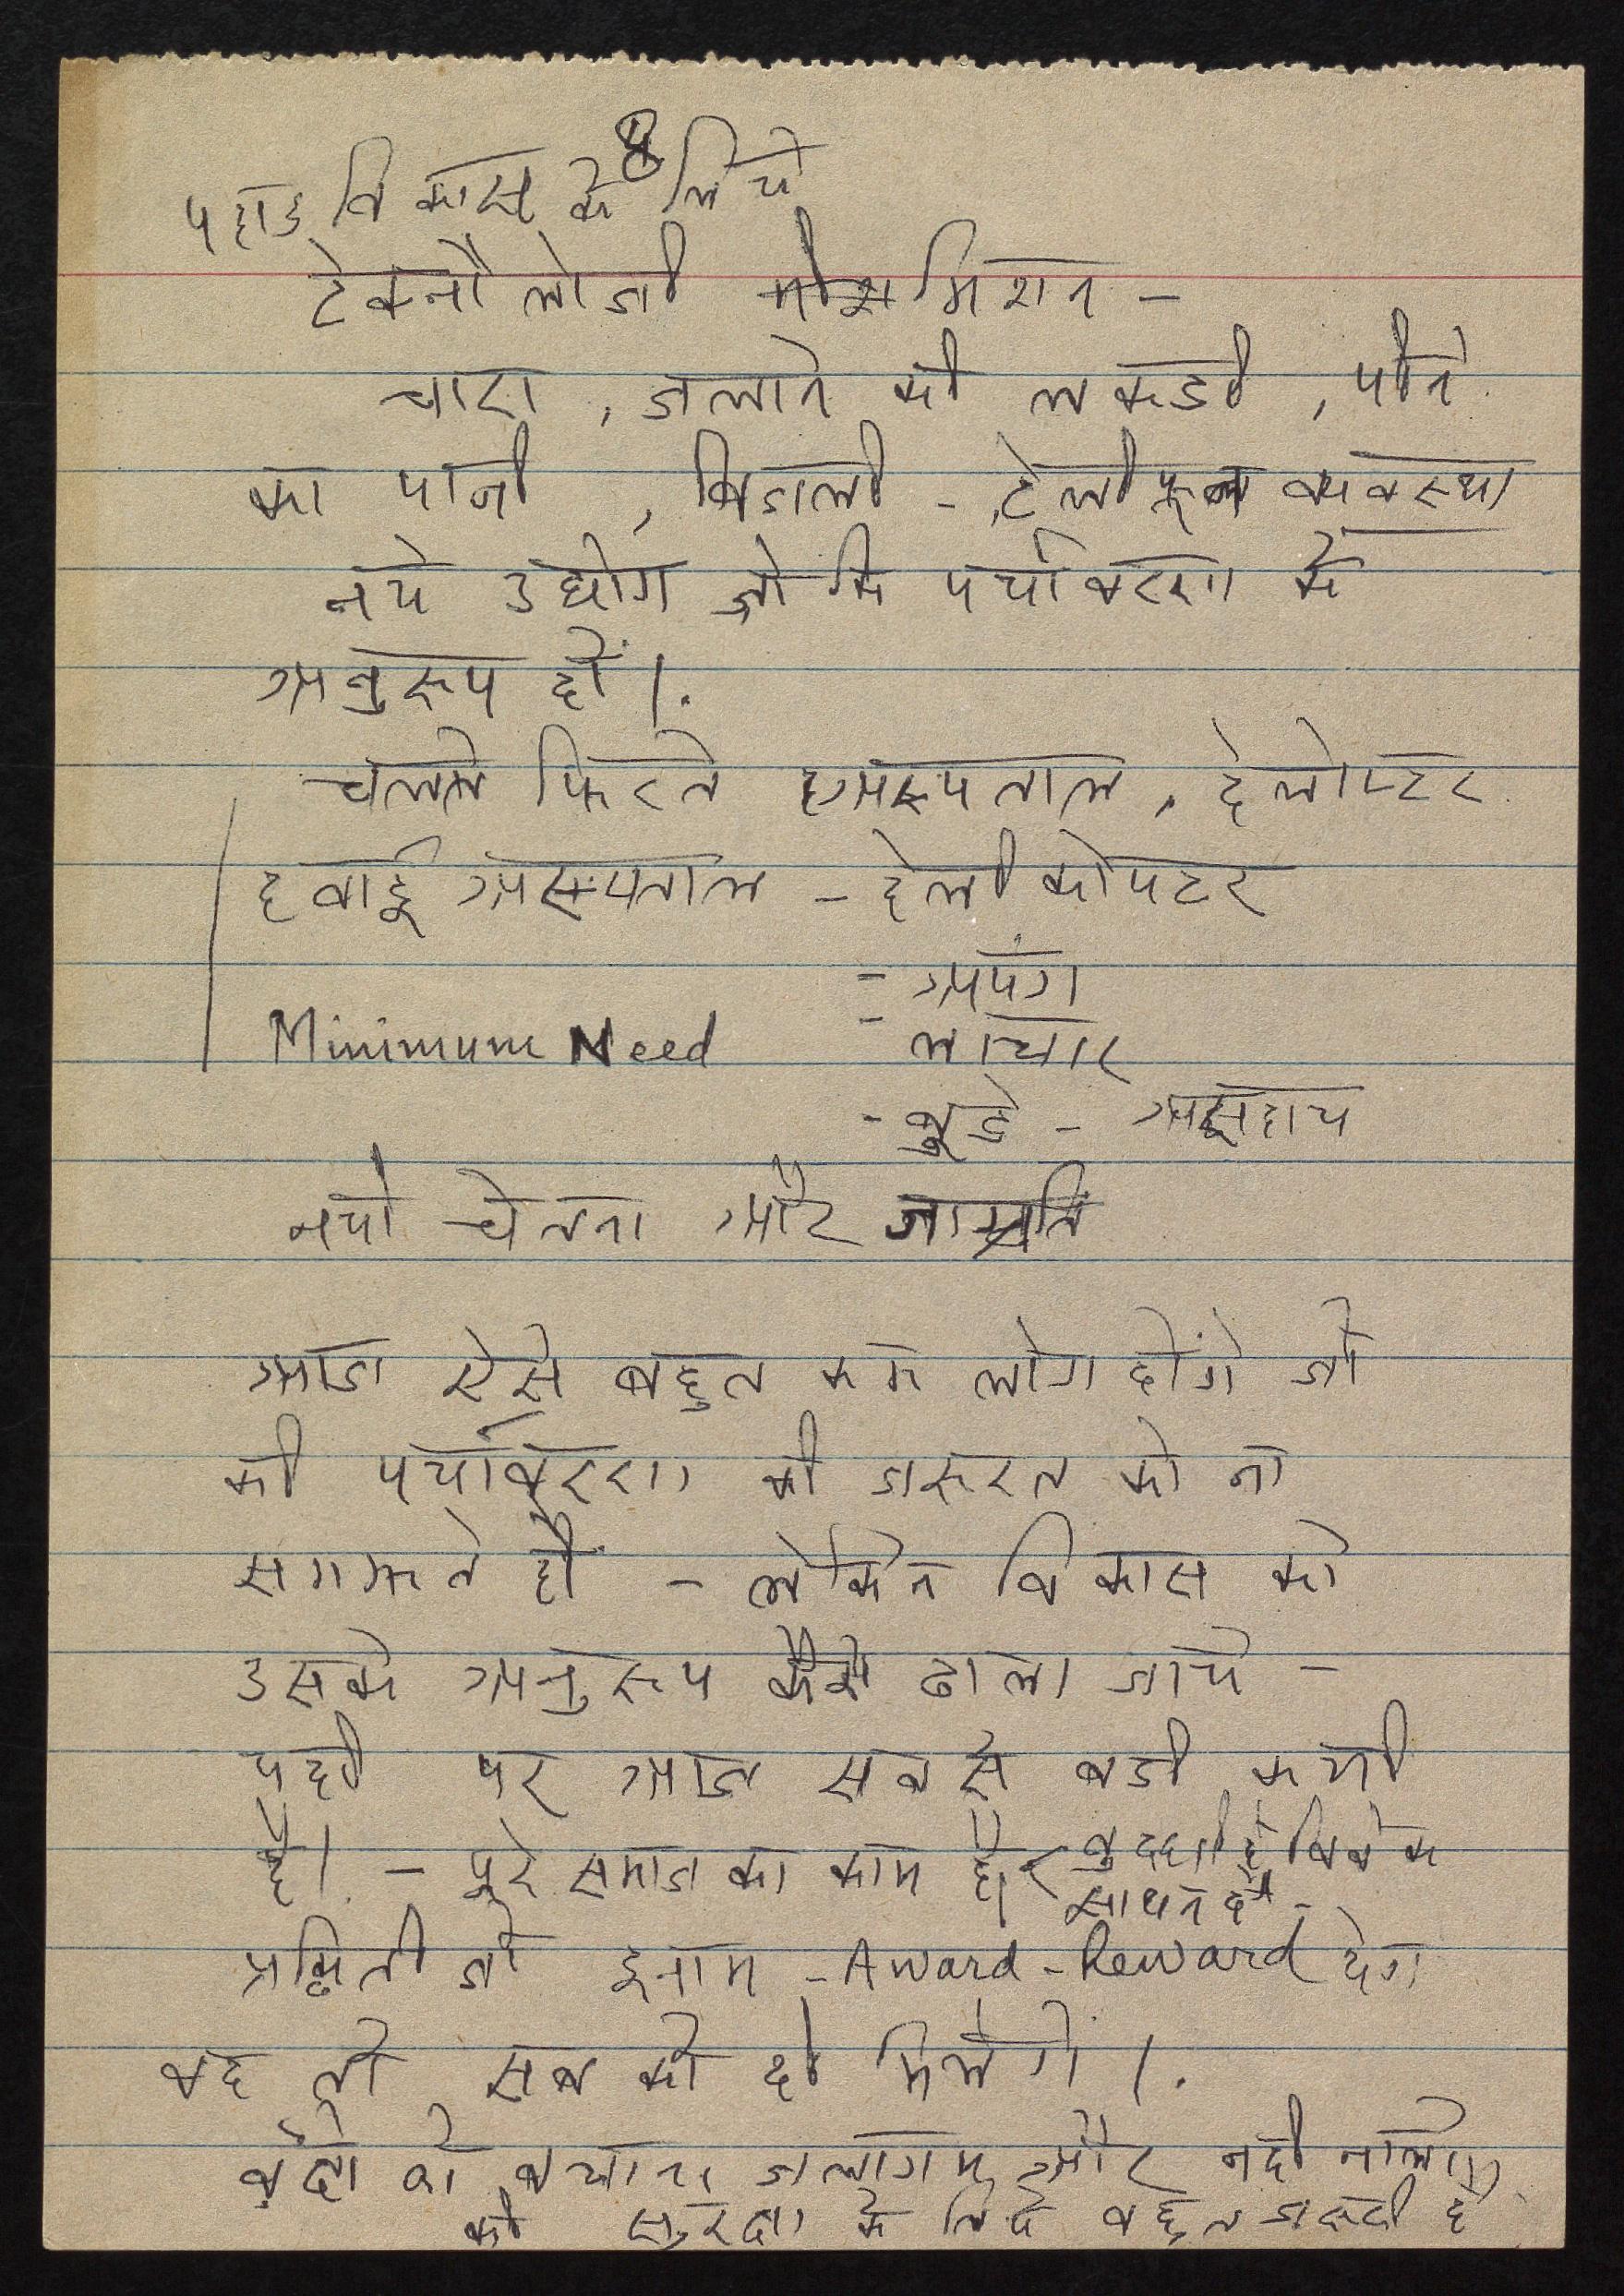 8
पहाड विकास के लिये
टेक्नौलोजी मिशन -
चारा, जलाने की लकडी, पीने
का पानी, बिजली -, टेलीफून व्यवस्था
नये उद्योग जो कि पर्यावरण के
अनुरूप हों।
चलते फिरते अस्पताल, हेलोप्टर
हवाई अस्पताल - हेलीकोपटर
- अपंग
Minimum Need - लाचार
- बुडे - असहाय
नयी चेतना और जाग्रति
आज ऐसे बहुत कम लोग होंगे जो
की पर्यावरण की जरूरत को ना
समझते हों - लेकिन विकास को
उसके अनुरूप कैसे ढाला जाये -
यहीं पर आज सबसे बडी कमी
है। - पूरे समाज का काम है विवेक
साथ न दे -
जो इनाम - Award - Reward देगा
वह तो सब को ही मिलेंगे।
वृक्षों को बचाना जलागम और नदी नालों
की सुरक्षा के लिये बहुत जरूरी है